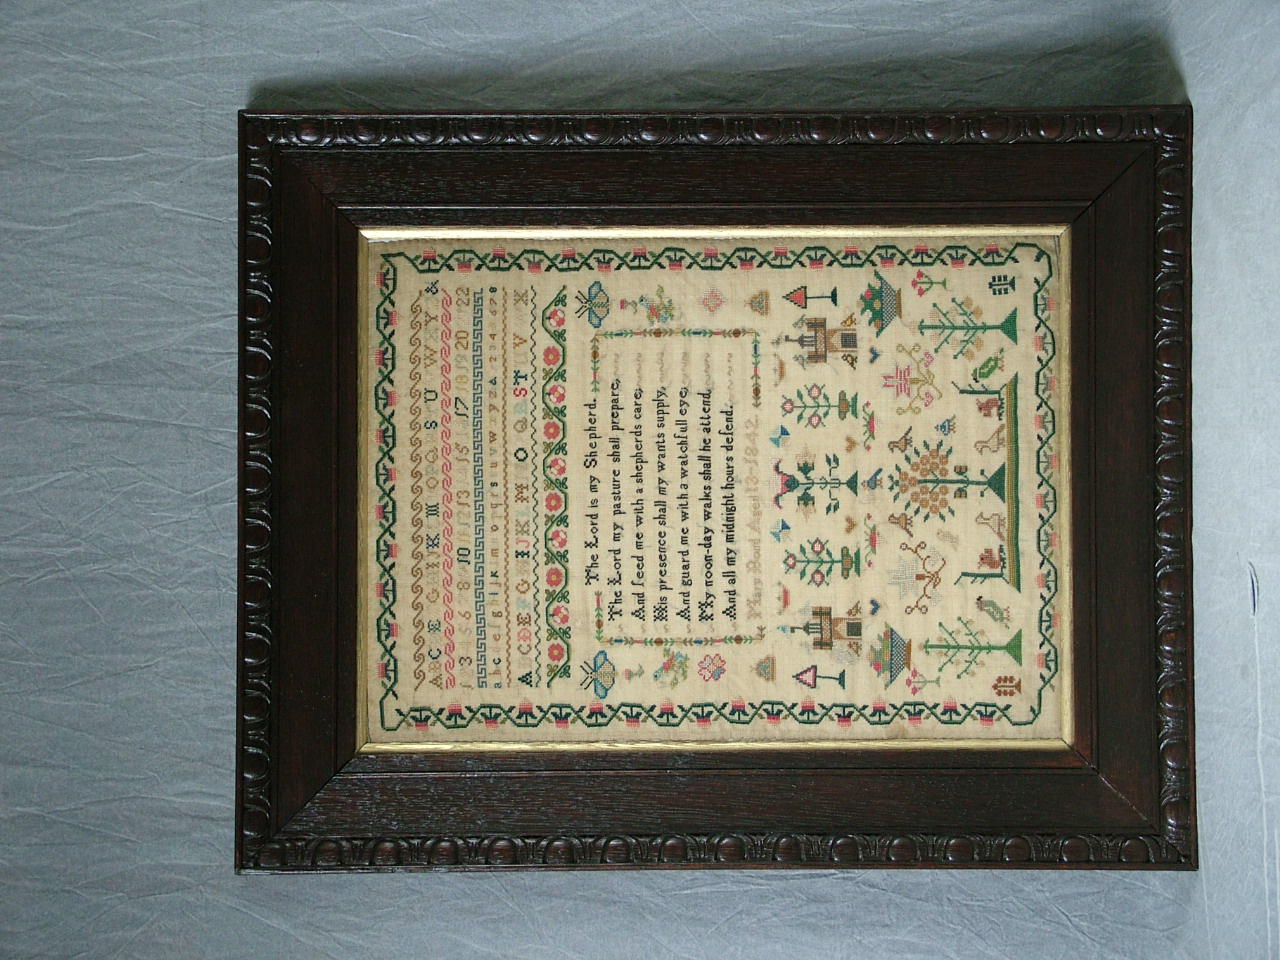 A B C E G H I K M O P Q R S U W Y &
1 3 5 6 8 10 11 13 15 17 18 19 20 22
a b c d e f g h i j k l m n o p q r s t u v w x y z & 2 3 4 6 7 8
A B C D E F G H I J K L M N O Q R S T U V X
The Lord is my Shepherd.
The Lord my pasture shall prepare,
And feed me with a shepherds care,
His presence shall my wants supply,
And guard me with a watchfull eye,
My noon-day walks shall he attend,
And all my midnight hours defend.
Mary Bond Aged 13-1842